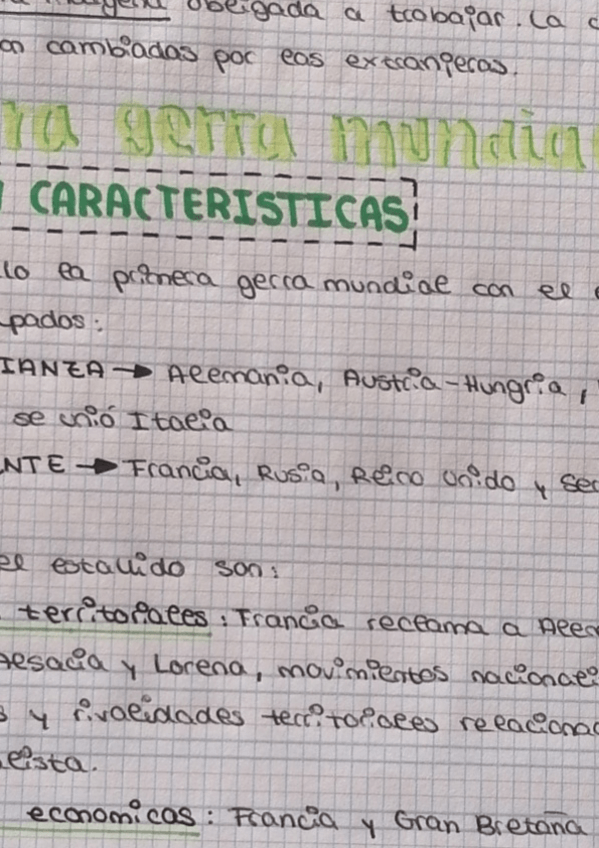 obligada a trabajar. La
cambiadas por las extranjeras.
ra gerra mundia
CARACTERISTICAS
lo la primera gerra mundial con el
pados:
IANZA → Alemania, Austria-Hungria,
se unió Italia
NTE → Francia, Rusia, Reino Unido y Ser
el estallido son:
territoriales: Francia reclama a Alem
Alsacia y Lorena, movimientos nacional
s y rivalidades territoriales relaciona
lista.
economicas: Francia y Gran Bretaña